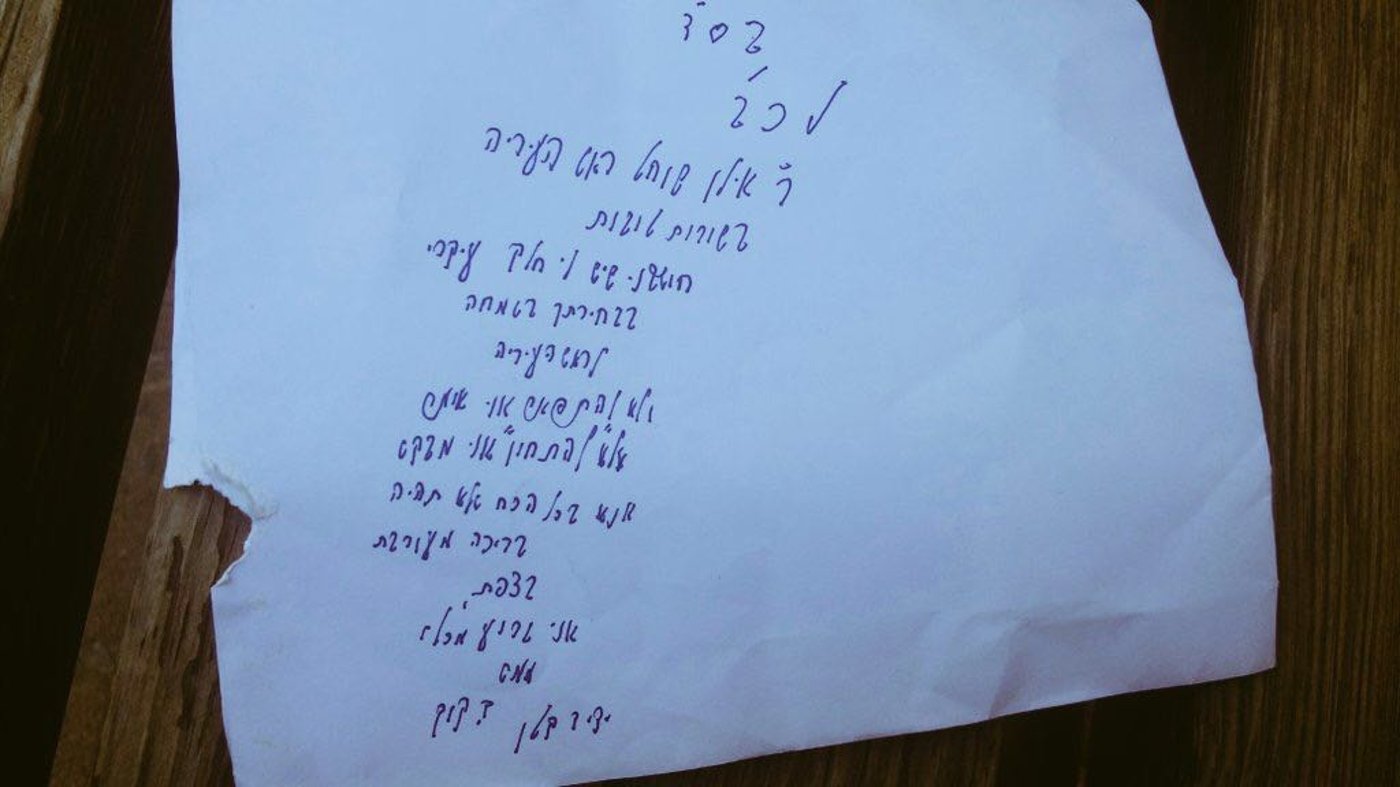 בס"ד
לכב'
ר' אילן שוחט ראש העיריה
בשורות טובות
חושבני שיש לי חלק עיקרי
בבחירתך בשמחה
לראש העיריה
ולא להתפאר אני
אלא "להתחנן" אני מבקש
אנא בכל הכח שלא תהיה
בריכה מעורבת
בצפת
אני מכל
ממש
ידיד